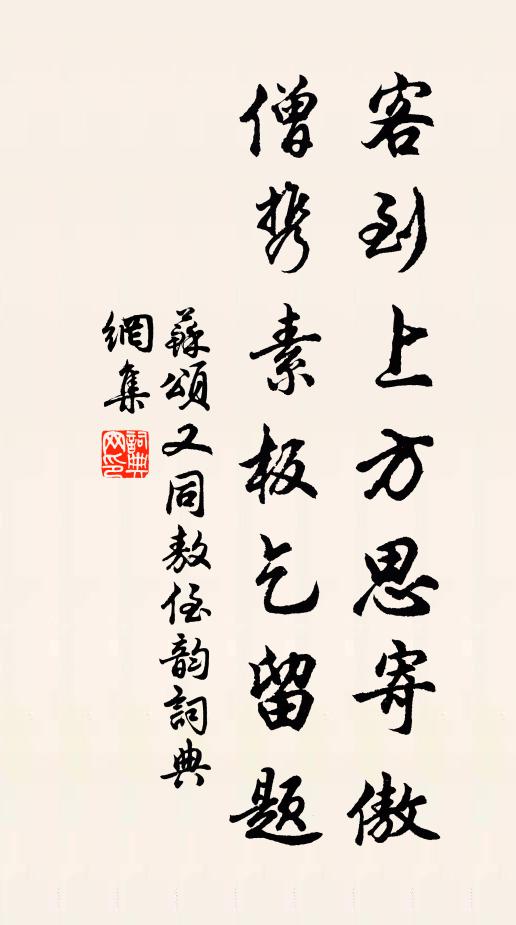 客到上方思寄傲
僧携素板乞留题
蘇頌又同敖侄韵詞典
網集
詞典
网印